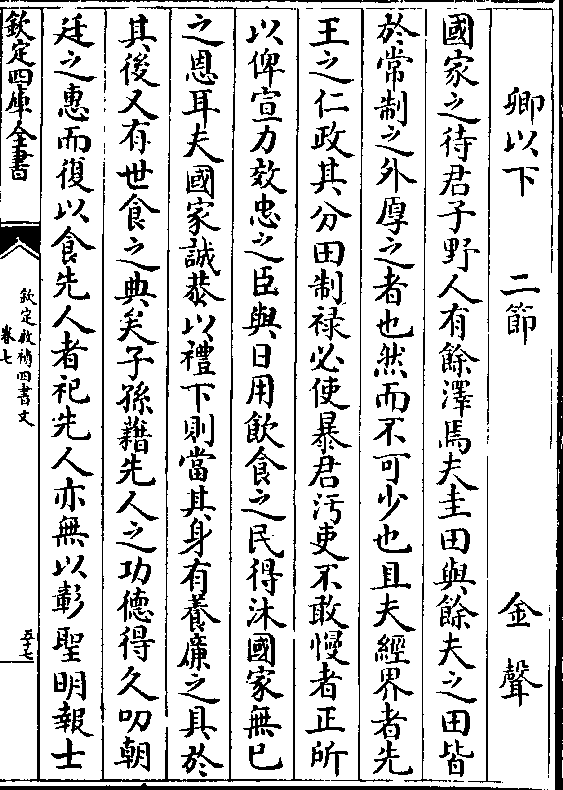 卿以下　二節　金聲
國家之待君子野人有餘澤焉夫圭田與餘夫之田皆
於常制之外厚之者也然而不可少也且夫經界者先
王之仁政其分田制禄必使暴君汚吏不敢慢者正所
以俾宣力效忠之臣與日用飲食之民得沐國家無已
之恩耳夫國家誠恭以禮下則當其身有養廉之具於
其後又有世食之典矣子孫藉先人之功德得久叨朝
廷之惠而復以食先人者祀先人亦無以彰聖明報士
欽定四庫全書
欽定啟禎四書文
卷七
五十七